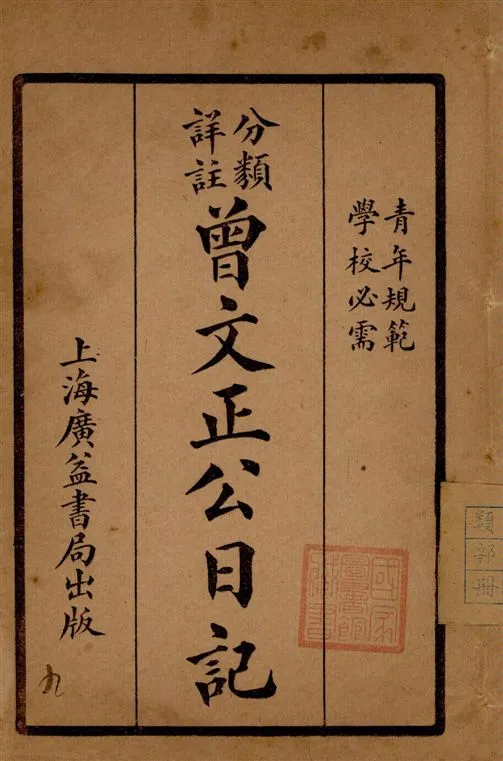 青年規範
學校必需
分類
詳註
曾文正公日記
上海廣益書局出版
九
國家
圖書館
藏書
類
部
冊